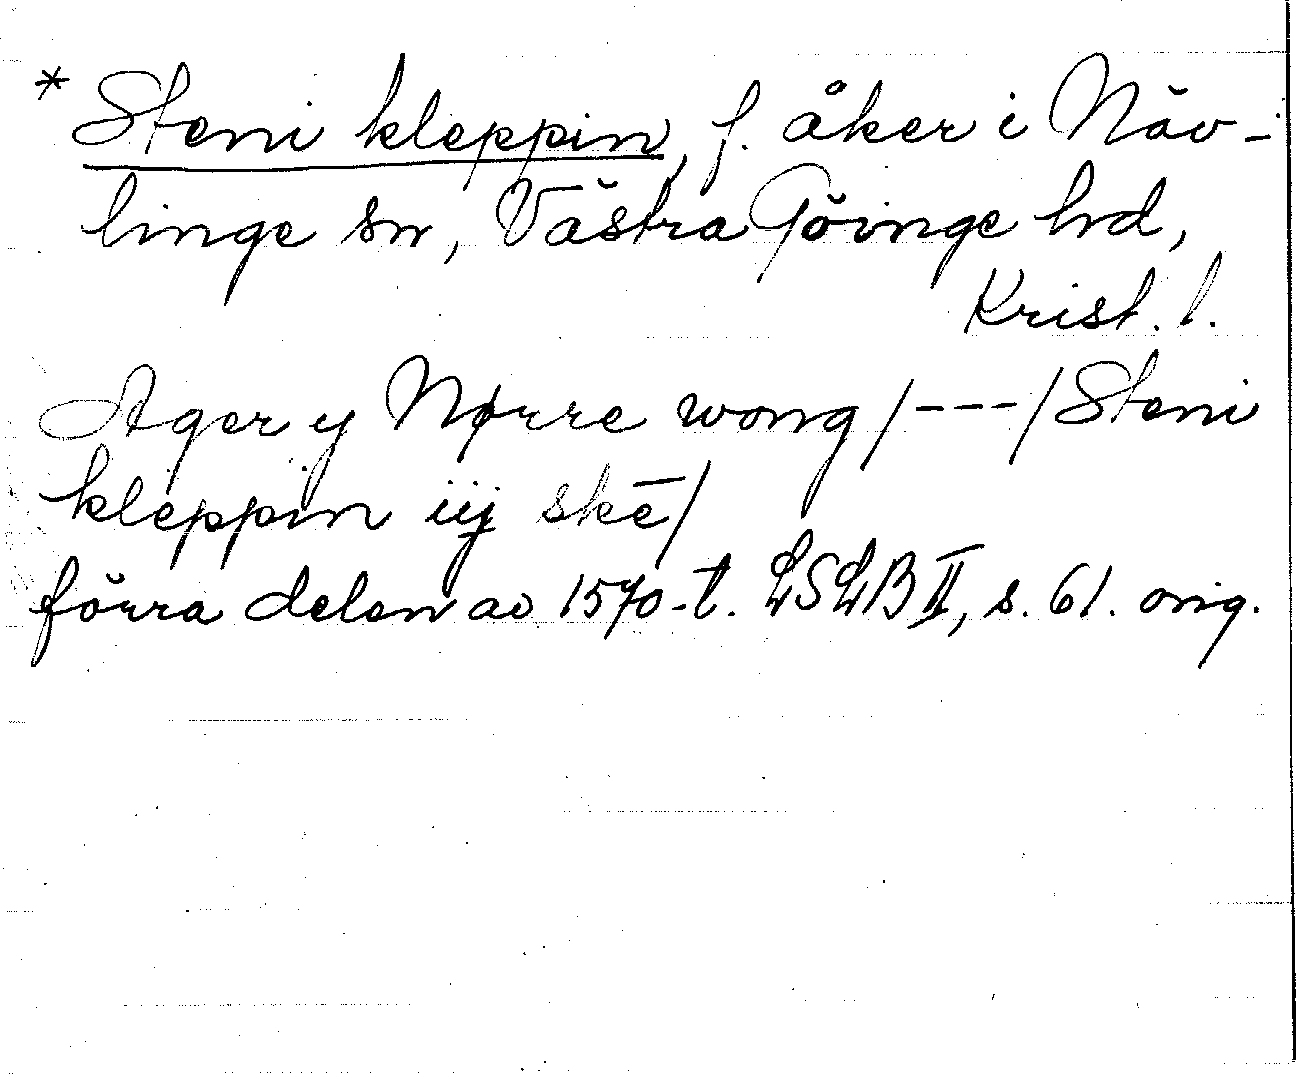 * Steni kleppin, f. åker i Näv-
linge sn, Västra Göinge hd,
Krist. l.
Ager y Nørre wong /---/ Steni
kleppin iij skē/
förra delen av 1570-t. LSLB II, s. 61. orig.